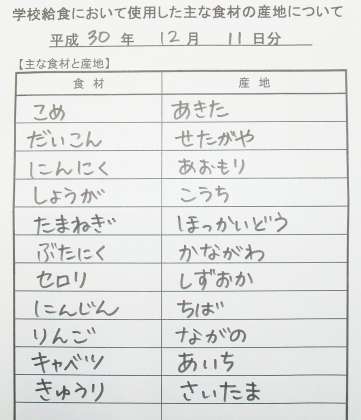 学校給食において使用した主な食材の産地について
平成 30 年 12 月 11 日分
【主な食材と産地】
食材 産地
こめ あきた
だいこん せたがや
にんにく あおもり
しょうが こうち
たまねぎ ほっかいどう
ぶたにく かながわ
セロリ しずおか
にんじん ちば
りんご ながの
キャベツ あいち
きゅうり さいたま